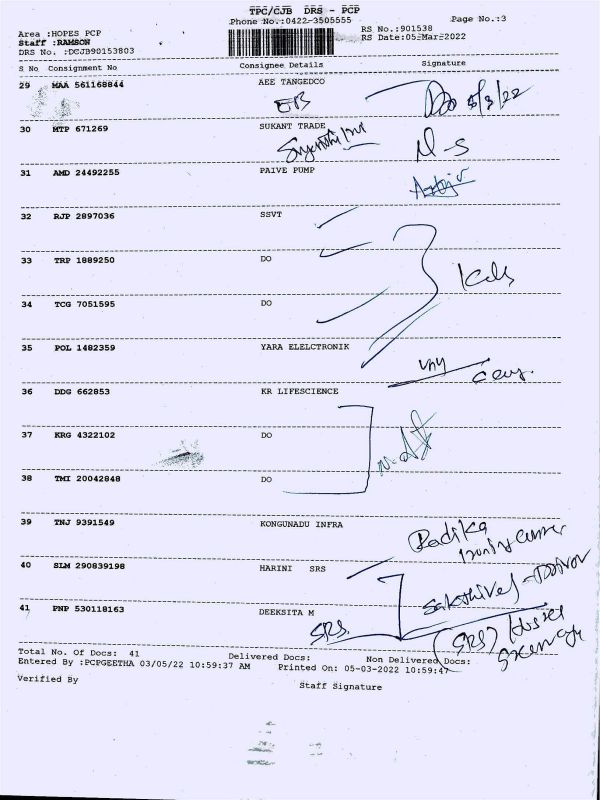 TPC/CJB DRS - PCP
Phone No.:0422-3505555
Page No.:3
Area :HOPES PCP
Staff :RAMSON
DRS No. :DCJB90153803
RS No.:901538
RS Date:05-Mar-2022
S No Consignment No Consignee Details Signature
29 MAA 561168844 AEE TANGEDCO
EB
5/3/22
30 MTP 671269 SUKANT TRADE
N-S
31 AMD 24492255 PAIVE PUMP
32 RJP 2897036 SSVT
33 TRP 1889250 DO
34 TCG 7051595 DO
35 POL 1482359 YARA ELELCTRONIK
36 DDG 662853 KR LIFESCIENCE
37 KRG 4322102 DO
38 TMI 20042848 DO
39 TNJ 9391549 KONGUNADU INFRA
Radika
40 SLM 290839198 HARINI SRS
Sakthivel
41 PNP 530118163 DEEKSITA M
SRS.
(SRS)
Total No. Of Docs: 41 Delivered Docs: Non Delivered Docs:
Entered By :PCPGEETHA 03/05/22 10:59:37 AM Printed On: 05-03-2022 10:59:47
Verified By Staff Signature